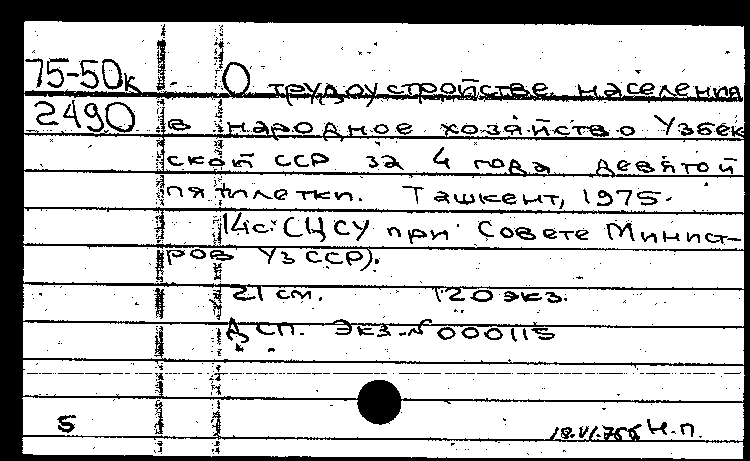 75-50к О трудоустройстве населения
2490 в народное хозяйство Узбек
ской ССР за 4 года девятой
пятилетки. Ташкент, 1975.
14с. (ЦСУ при Совете Минист-
ров УзССР).
21 см. 120 экз.
ДСП. Экз. № 000115
5 Н.П.